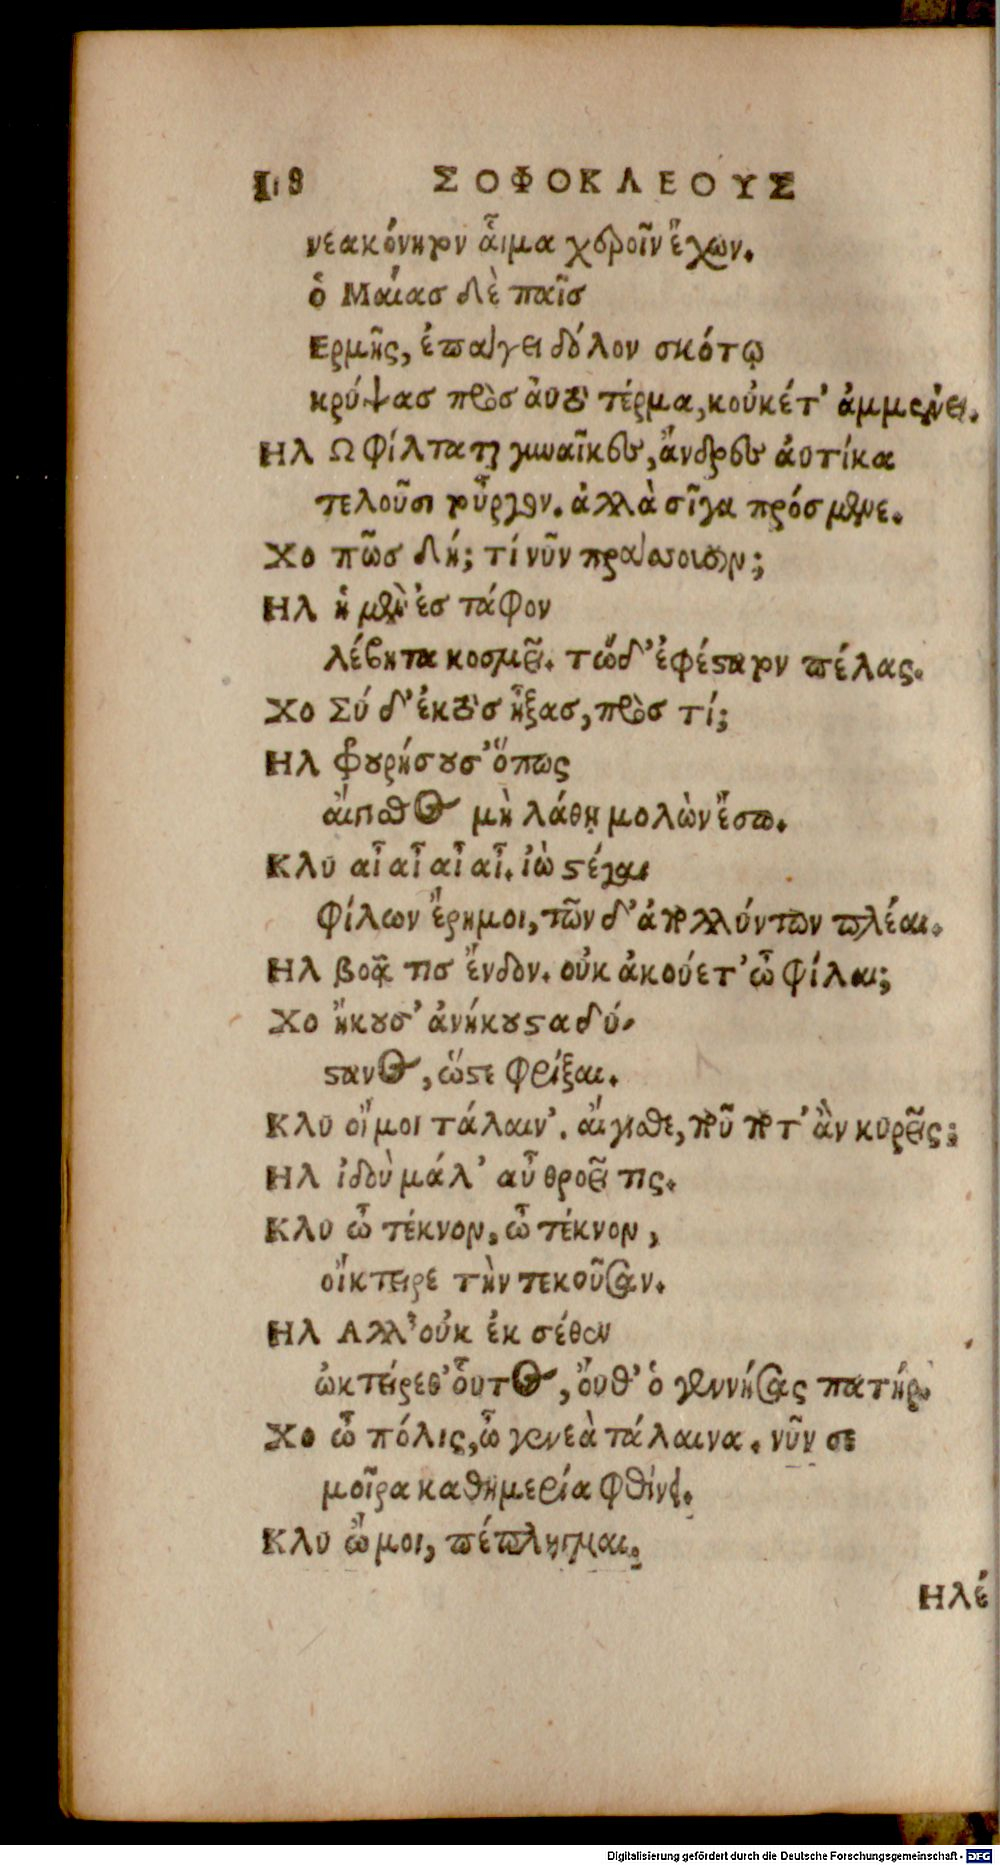 118 ΣΟΦΟΚΛΕΟΥΣ
νεακόνητον αἷμα χειροῖν ἔχων.
ὁ Μαίας δὲ παῖς
Ερμῆς, ἐπάγει δόλον σκότῳ
κρύψας πρὸς ἀυτὸ τέρμα, κοὐκέτ' ἀμμένει.
Ηλ Ω φίλταται γυναῖκες, ἄνδρες ἀυτίκα
τελοῦσι τοὖργον. ἀλλὰ σῖγα πρόσμενε.
Χο πῶς δή; τί νῦν πράσσουσιν;
Ηλ ἡ μὲν ἐς τάφον
λέβητα κοσμεῖ. τὼ δ' ἐφέστατον πέλας.
Χο Σύ δ' ἐκτὸς ἦξας, πρὸς τί;
Ηλ φρουρήσουσ' ὅπως
αἴγισθος μὴ λάθῃ μολὼν ἔσω.
Κλυ αἶ αἶ αἶ αἶ. ἰὼ στέγαι
φίλων ἔρημοι, τῶν δ' ἀπολλύντων πλέαι.
Ηλ βοᾷ τις ἔνδον. οὐκ ἀκούετ' ὦ φίλαι;
Χο ἤκουσ' ἀνήκουστα δύ-
στανος, ὥστε φρίξαι.
Κλυ οἴμοι τάλαιν'. αἴγισθε, ποῦ ποτ' ἂν κυρεῖς;
Ηλ ἰδοὺ μάλ' αὖ θροεῖ τις.
Κλυ ὦ τέκνον, ὦ τέκνον,
οἴκτειρε τὴν τεκοῦσαν.
Ηλ Αλλ' οὐκ ἐκ σέθεν
ᾠκτείρεθ' οὗτος, ὄυθ' ὁ γεννήσας πατήρ.
Χο ὦ πόλις, ὦ γενεὰ τάλαινα. νῦν σε
μοῖρα καθημερία φθίνει.
Κλυ ὤμοι, πέπληγμαι.
Ηλέ
Digitalisierung gefördert durch die Deutsche Forschungsgemeinschaft - DFG